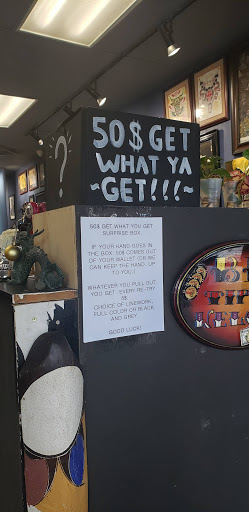 ?
50$ GET
WHAT YA
~GET!!!~
50$ GET WHAT YOU GET
SURPRISE BOX
IF YOUR HAND GOES IN
THE BOX, 50$ COMES OUT
OF YOUR WALLET (OR WE
CAN KEEP THE HAND, UP
TO YOU!)
WHATEVER YOU PULL OUT
YOU GET. EVERY RE-TRY
CHOICE OF LINEWORK,
FULL COLOR OR BLACK
AND GREY.
GOOD LUCK!